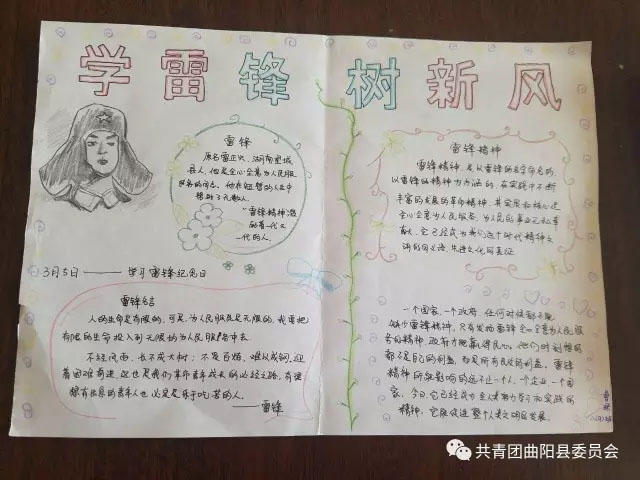 学雷锋 树新风
雷锋
原名雷正兴，湖南望城
县人，他是全心全意为人民服
务的同志，他在短暂的人生中
帮助了无数人。
"雷锋精神激
励着一代又
一代的人。
3月5日——学习雷锋纪念日
雷锋名言
人的生命是有限的，可是，为人民服务是无限的，我要把
有限的生命投入到无限的为人民服务中去。
不经风雨，长不成大树；不受百炼，难以成钢，迎
着困难前进，这也是我们革命青年成长的必经之路，有理
想有出息的青年人也必定是乐于吃苦的人。
——雷锋
雷锋精神
雷锋精神，是以雷锋的名字命名的，
以雷锋的精神为内涵的，在实践中不断
丰富的发展的革命精神，其实质和核心是
全心全意为人民服务，为人民的事业无私奉
献，它已经成为我们这个时代精神文
明的同义语、先进文化的表征
一个国家，一个政府，任何时候都不能
缺少雷锋精神，只有发扬雷锋全心全意为人民服
务的精神，政府才能赢得民心，他们时刻想的
都不是自己的利益，而是所有民众的利益，雷锋
精神所能影响的远不止一个人，一个企业，一个国
家，今日，它已经成为全人类努力学习和实践的
精神，它能促进整个人类文明的发展。
共青团曲阳县委员会